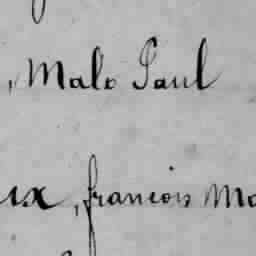 , Malo Paul
ux, francois Ma